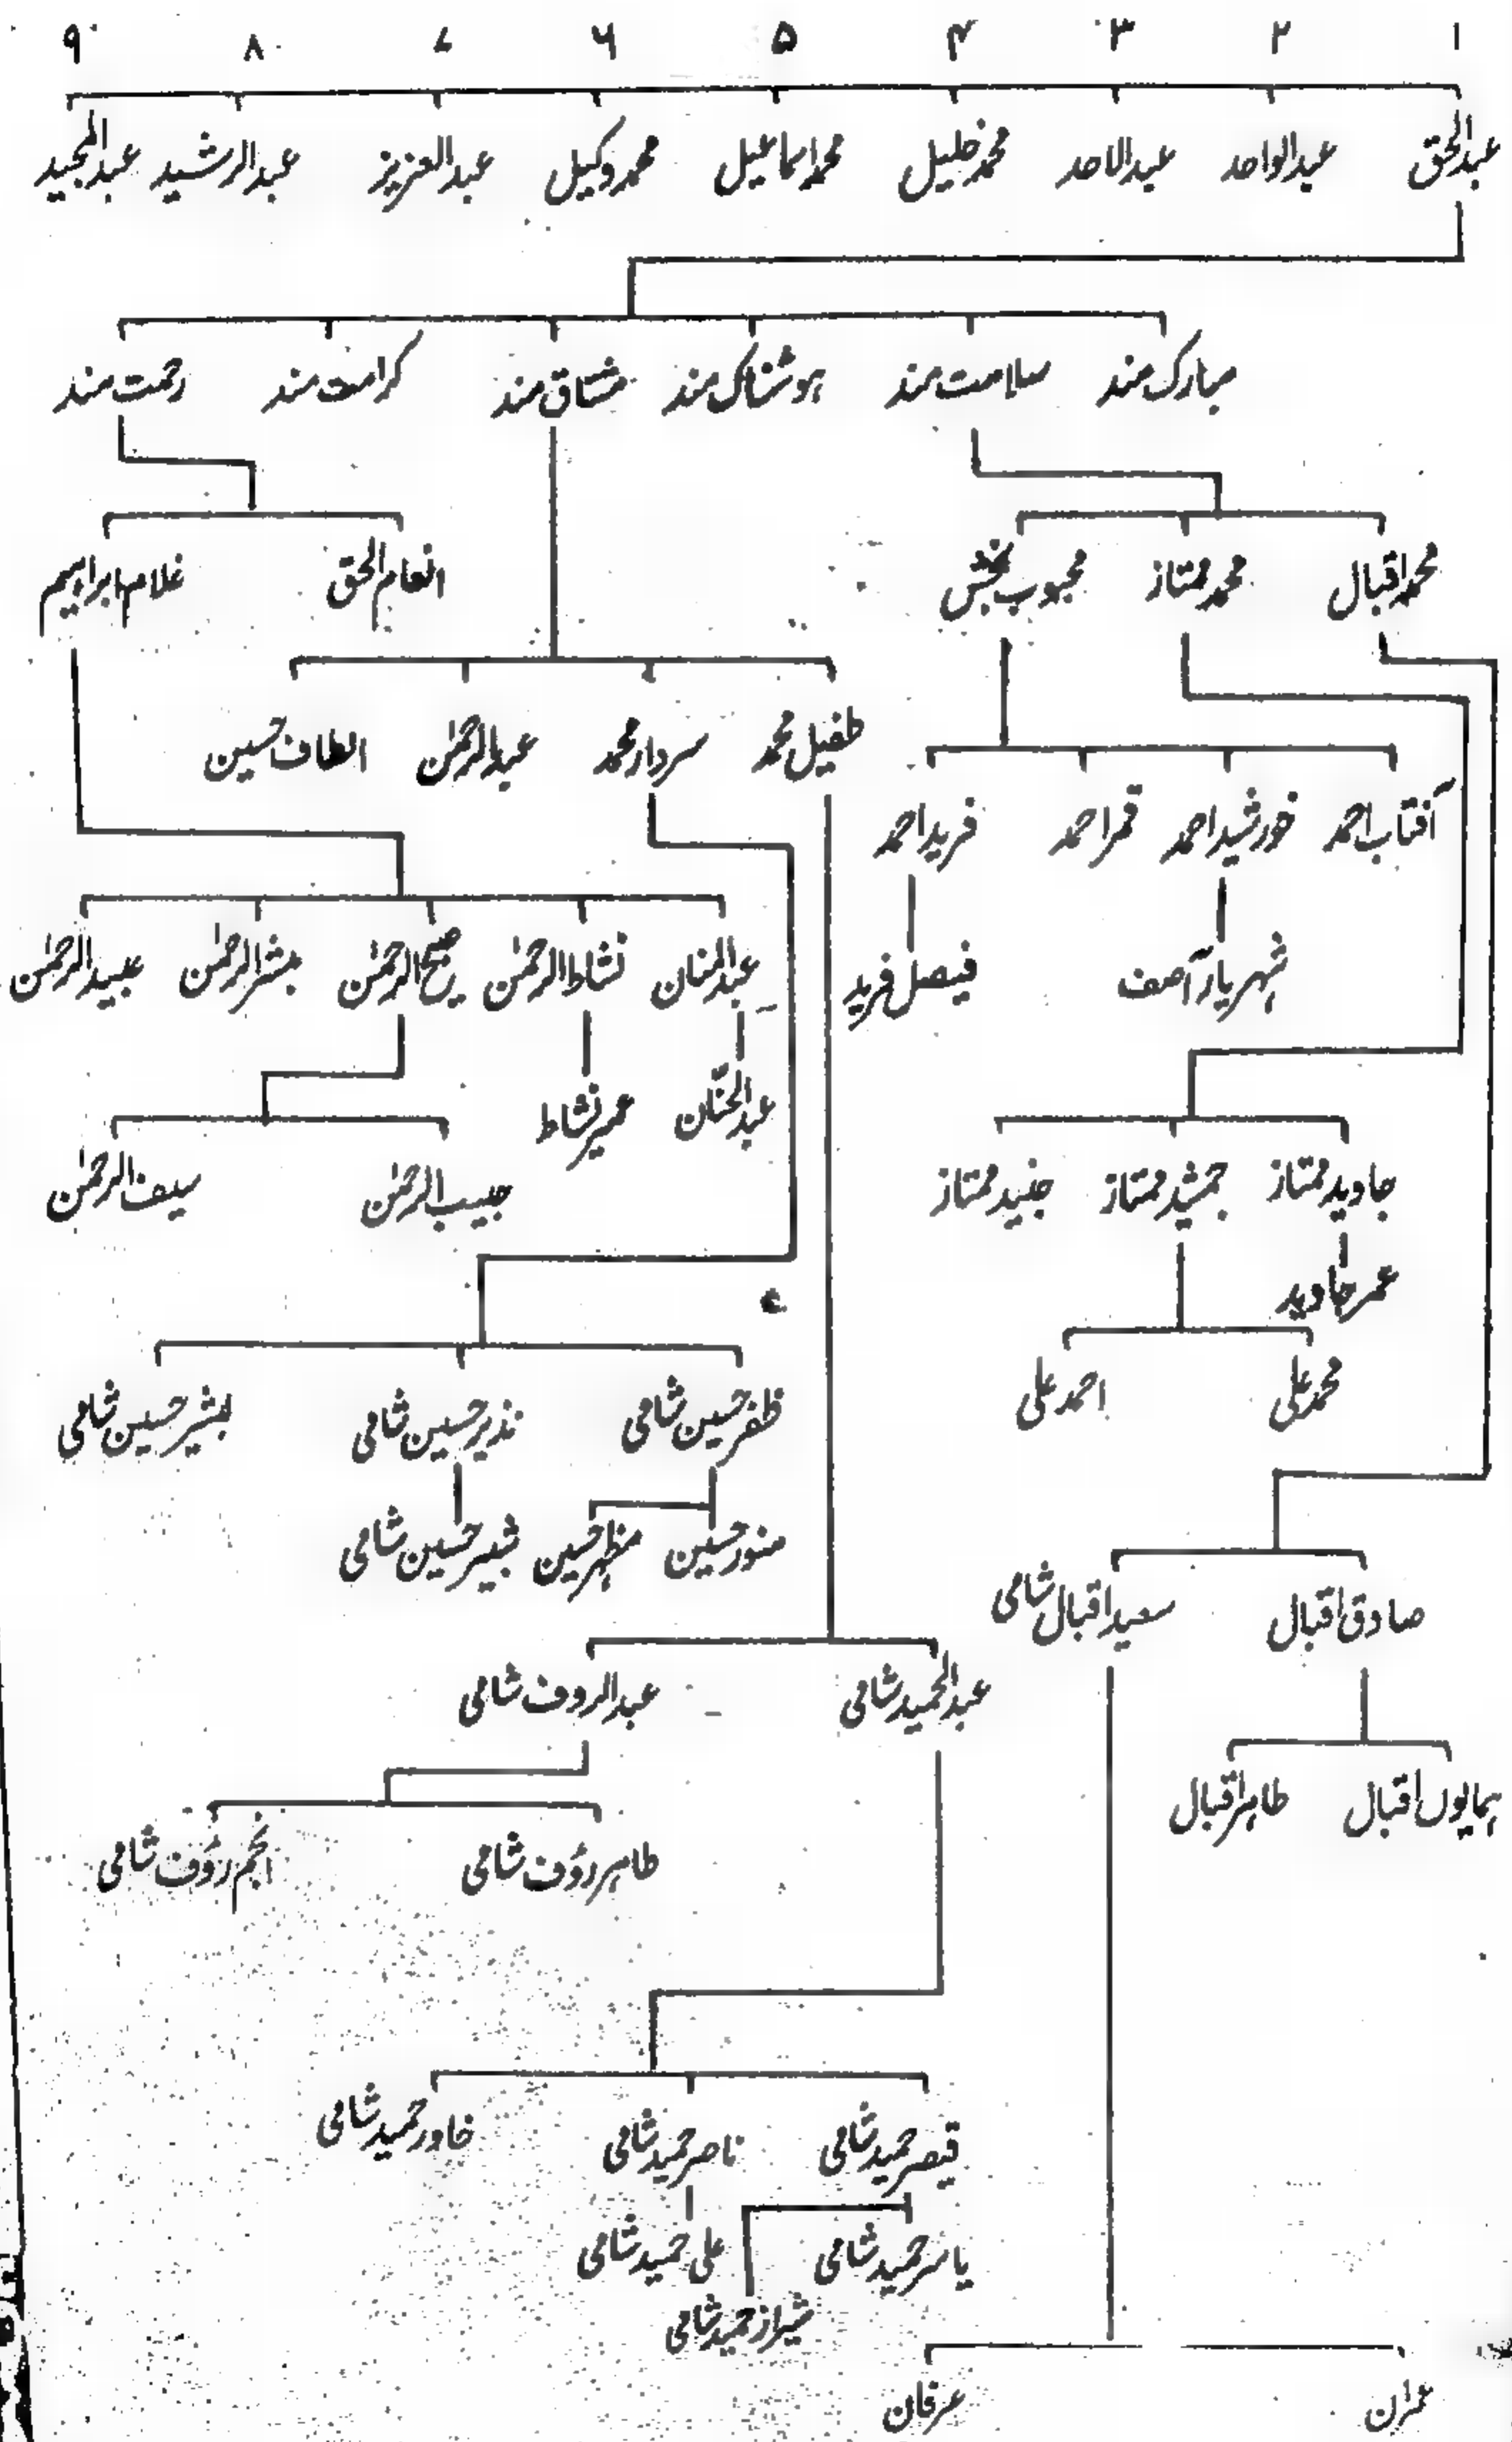 ۱ ۲ ۳ ۴ ۵ ۶ ۷ ۸ ۹
عبدالحق عبدالواحد عبدالاحد محمد خلیل محمد اسماعیل محمد وکیل عبدالعزیز عبدالرشید عبدالمجید
مبارک مند سلامت مند ہوشناک مند مشتاق مند کرامت مند رحمت مند
محمد اقبال محمد ممتاز محبوب بخش انعام الحق غلام ابراہیم
طفیل محمد سردار محمد عبدالرحمٰن الطاف حسین
آفتاب احمد خورشید احمد قمر احمد فرید احمد
شہریار آصف فیصل فرید عبدالمنان نشاط الرحمٰن صبیح الرحمٰن مبشر الرحمٰن عبید الرحمٰن
عبدالحنّان عمیر نشاط
جاوید ممتاز جمشید ممتاز جنید ممتاز حبیب الرحمٰن سیف الرحمٰن
عمر جاوید
محمد علی احمد علی ظفر حسین شامی نذیر حسین شامی بشیر حسین شامی
منور حسین مظہر حسین شبیر حسین شامی
صادق اقبال سعید اقبال شامی
عبدالحمید شامی عبدالروف شامی
ہمایوں اقبال طاہر اقبال
طاہر رؤف شامی انجم رؤف شامی
قیصر حمید شامی ناصر حمید شامی خاور حمید شامی
یاسر حمید شامی علی حمید شامی
شیراز حمید شامی
عمران عرفان